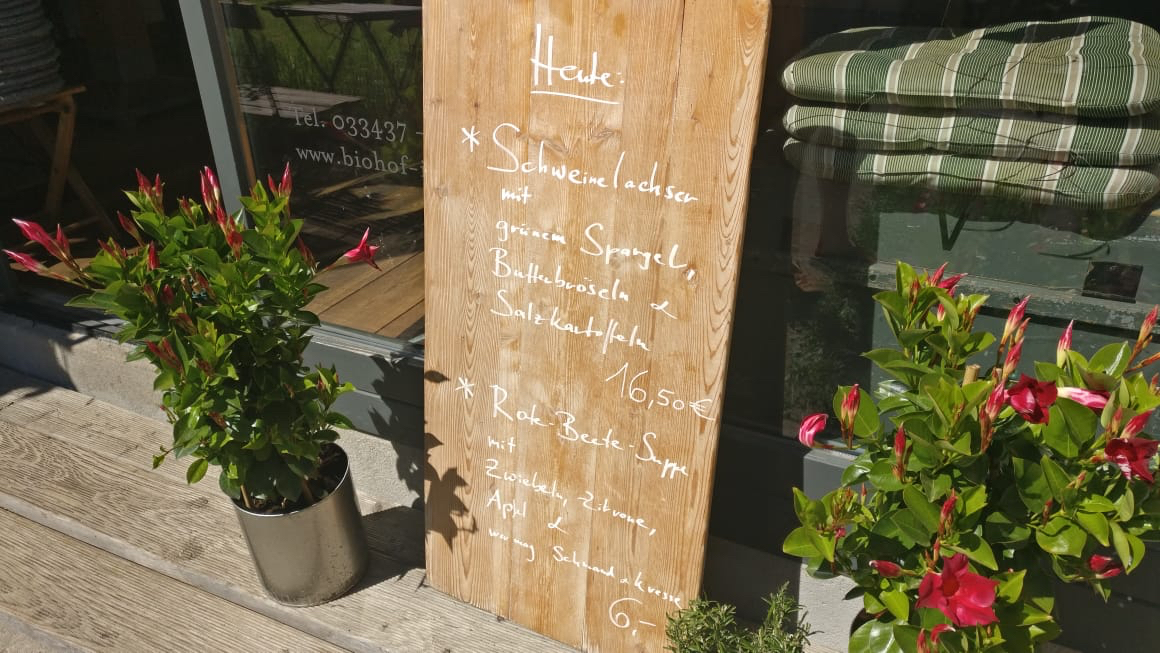 Tel. 033437 -
www.biohof-
Heute:
* Schweinelachser
mit
grünem Spargel,
Butterbröseln &
Salzkartoffeln
16,50€
* Rote-Beete-Suppe
mit
Zwiebeln, Zitrone,
Apfel &
wer mag Schmand & Kresse
6,-